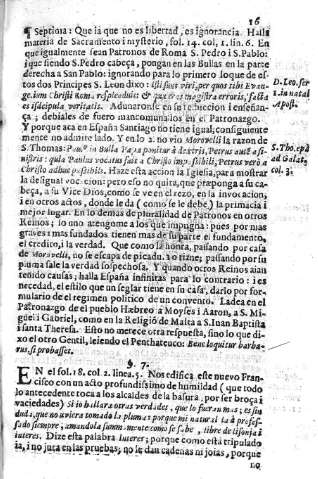 16
¶ Septima: Que la que no es libertad, es ignorancia. Halla
materia de Sacramento i mysterio, fol. 14. col. 1. lin. 6. En
que igualmente sean Patronos de Roma S. Pedro i S. Pablo:
i que siendo S. Pedro cabeça, pongan en las Bullas en la parte
derecha a San Pablo: ignorando para lo primero loque de es-
tos dos Principes S. Leon dixo: isti sunt viri, per quos tibi Evan-
gelium Christi Roma resplenduit: & quæ eras magistra erroris, facta
es discipula veritatis. Adunaronse en su
ça; debiales de fuero mancomunalos en el Patronazgo.
Y porque aca en España Santiago no tiene igual, consiguiente
mente no admite lado. Y en lo 2. no vio Moravelli la razon de
S. Thomas: in Bulla Papæ ponitur à dextris, Petrus autē a si-
nistris: quia Paulus vocatus fuit a Christo impassibili, Petrus verò a
Christo adhuc passibili. Haze esta accion la Iglesia, para mostrar
la desigual vocacion: pero eso no quita, que proponga a su ca-
beça, a su Vice Dios, como se ve en el rezo, en la invocacion,
i en otros actos, donde le da (como se le debe) la primacia i
mejor lugar. En lo demas de pluralidad de Patronos en otros
Reinos; lo uno atengamonos a los que impugna: pues por mas
graves i mas fundados tienen mas de su parte el fundamento,
el credito, i la verdad. Que como la honra, pasando por casa
de Moravelli, no se escapa de picadu. a o rizne; pasando por su
pluma sale la verdad sospechosa. Y quando otros Reinos aian
tenido causas; halla España infinitas para lo contrario: i es
necedad, el estilo que un seglar tiene en su casa, darlo por for-
mulario de el regimen politico de un convento. Ladea en el
Patronazgo de el pueblo Hæbreo a Moyses i Aaron, a S. Mi-
guel i Gabriel, como en la Religiō de Malta a S. Iuan Baptista
i santa Theresa. Esto no merece otra respuesta, sino lo que di-
xo el otro Gentil, leiendo el Penthateuco: Bene loquitur barba-
rus, si probasset.
D. Leo. ser.
1. in natal
Apost.
S. Tho. epa
ad Galat.
col. 3.
§. 7.
EN el fol. 18. col. 2. linea. 5. Nos edifica este nuevo Fran-
cisco con un acto profundissimo de humildad (que todo
lo antecedente toca a los alcaldes de la basura, por ser broça i
vaciedades) Si io hallara otras verdades, que lo fueran mas; es sin
duda, que no uviera tomado la pluma: porque mi natural la à profes-
sado siempre, amandola summamente como se sabe, libre de lisonja i
interes. Dize esta palabra Interes; porque como està tripulado
ia, i no juta en las pruebas, no le dan cadenas ni joias, porque
no